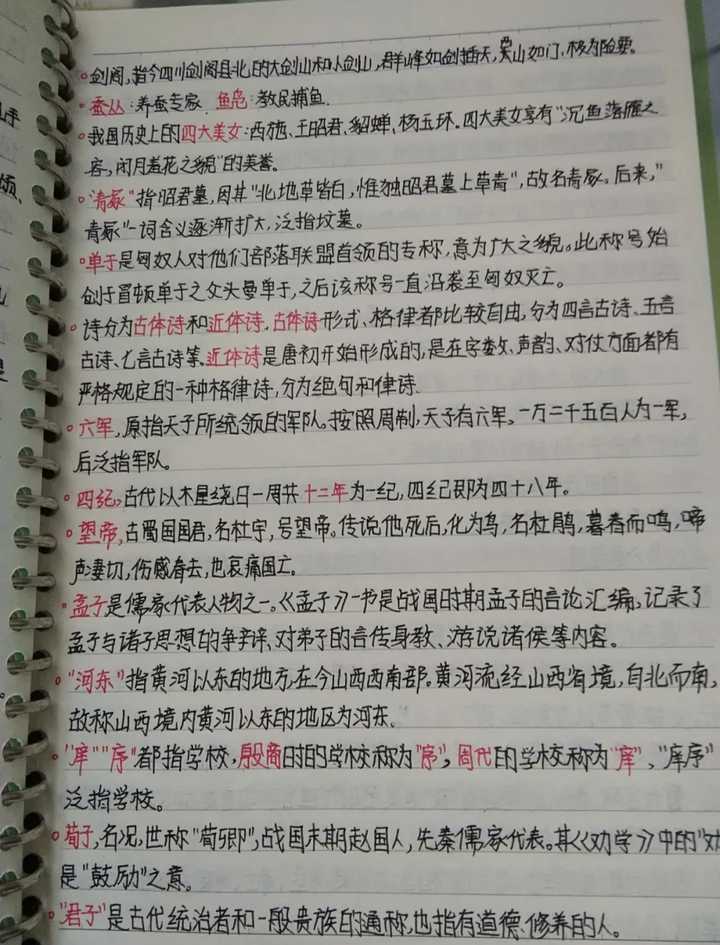 剑阁,指今四川剑阁县北的大剑山和小剑山,群峰如剑插天,两山如门,极为险要。
蚕丛:养蚕专家 鱼凫:教民捕鱼.
我国历史上的四大美女:西施、王昭君、貂蝉、杨玉环。四大美女享有"沉鱼落雁之
容,闭月羞花之貌"的美誉。
"青冢"指昭君墓,因其"北地草皆白,惟独昭君墓上草青",故名青冢。后来,"
青冢"一词含义逐渐扩大,泛指坟墓。
单于是匈奴人对他们部落联盟首领的专称,意为广大之貌。此称号始
创于冒顿单于之父头曼单于,之后该称号一直沿袭至匈奴灭亡。
诗分为古体诗和近体诗,古体诗形式、格律都比较自由,分为四言古诗、五言
古诗、七言古诗等。近体诗是唐初开始形成的,是在字数、声韵、对仗方面都有
严格规定的一种格律诗,分为绝句和律诗.
六军,原指天子所统领的军队。按照周制,天子有六军,一万二千五百人为一军,
后泛指军队。
四纪,古代以木星绕日一周共十二年为一纪,四纪即为四十八年。
望帝,古蜀国国君,名杜宇,号望帝。传说他死后,化为鸟,名杜鹃,暮春而鸣,啼
声凄切,伤感春去,也哀痛国亡。
孟子是儒家代表人物之一。《孟子》一书是战国时期孟子的言论汇编,记录了
孟子与诸子思想的争辩,对弟子的言传身教、游说诸侯等内容。
"河东"指黄河以东的地方,在今山西西南部。黄河流经山西省境,自北而南,
故称山西境内黄河以东的地区为河东.
"庠""序"都指学校,殷商时的学校称为"序",周代的学校称为"庠"、"庠序"
泛指学校。
荀子,名况,世称"荀卿",战国末期赵国人,先秦儒家代表。其《劝学》中的"劝
是"鼓励"之意。
"君子"是古代统治者和一般贵族的通称,也指有道德、修养的人。